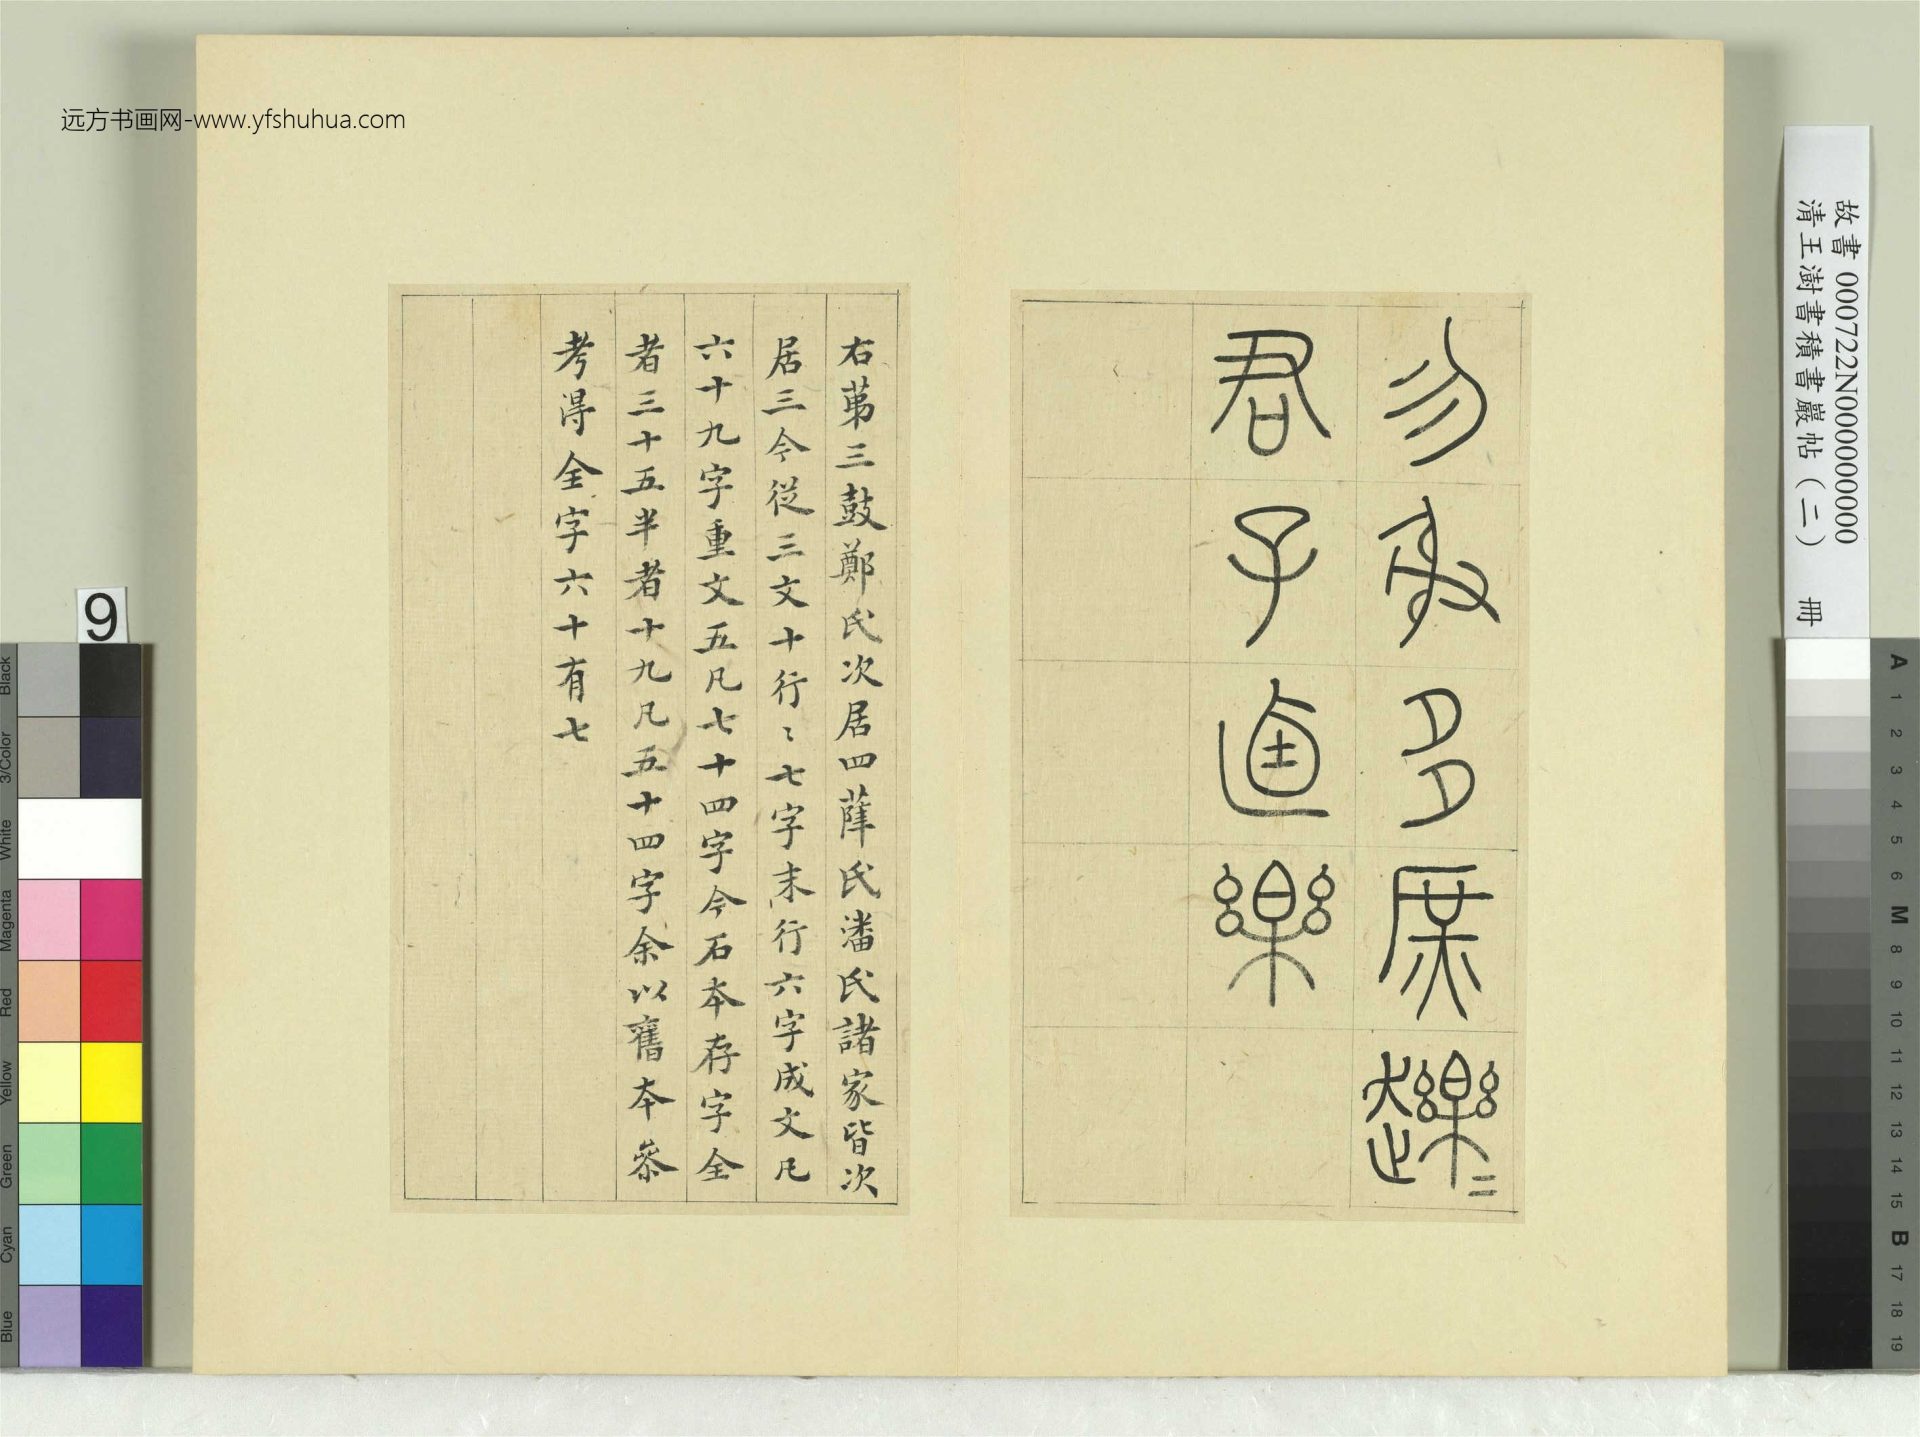 远方书画网-www.yfshuhua.com
故書 000722N000000000
清王澍書積書巖帖（二） 冊
勿射多庶䟏二
君子逌樂
右苐三鼓鄭氏次居四薛氏潘氏諸家皆次
居三今從三文十行〻七字末行六字成文凡
六十九字重文五凡七十四字今石本存字全
者三十五半者十九凡五十四字余以舊本叅
考得全字六十有七
9
Black
3/Color
White
Magenta
Red
Yellow
Green
Cyan
Blue
A 1 2 3 4 5 6 M 8 9 10 11 12 13 14 15 B 17 18 19